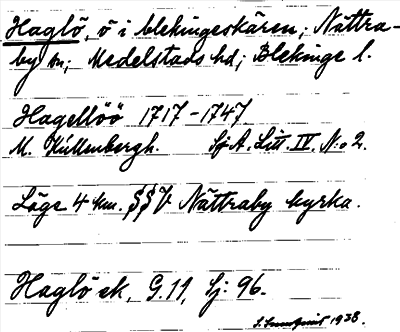 Haglö, ö i blekingeskären; Nättra-
by sn; Medelstads hd; Blekinge l.
Hagellöö 1717-1747
M. Küllenbergh. SjA. Litt. IV. No 2.
Läge 4 km. SSV Nättraby kyrka.
Haglö ek, G.11, Sj: 96.
S. Sundquist 1938.